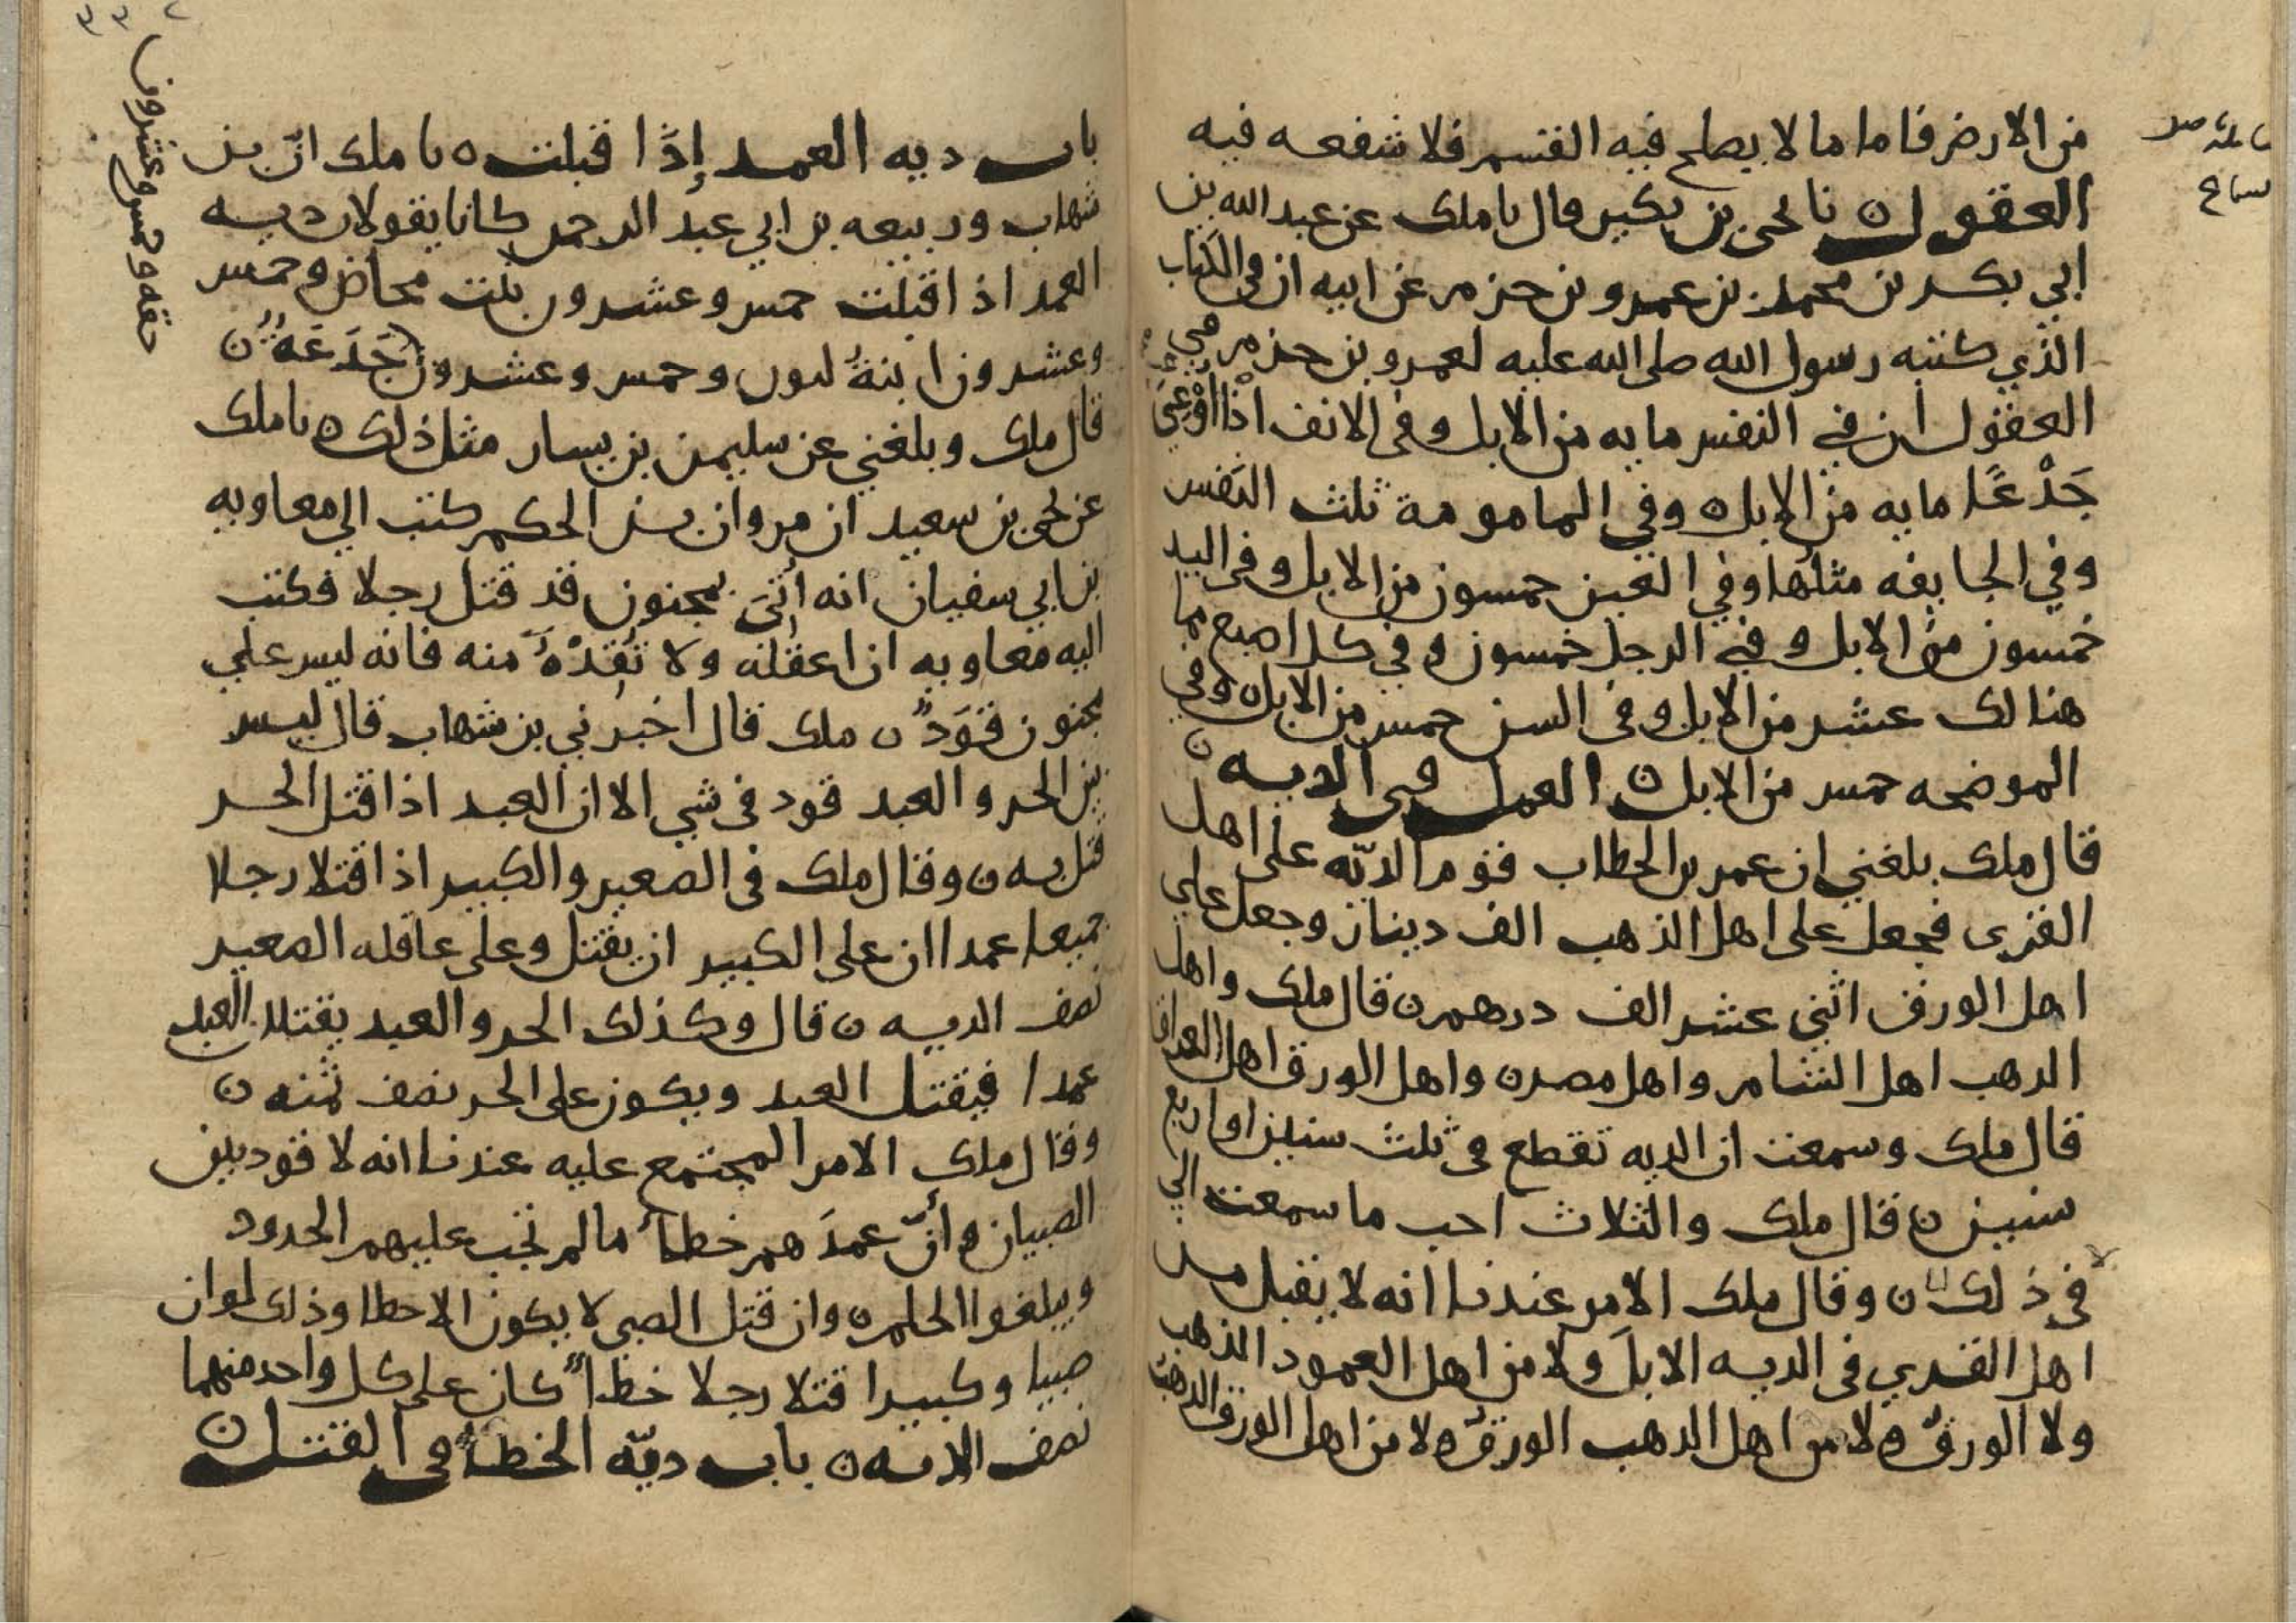 من الارض فاما ما لا يصلح فيه القسم فلا شفعه فيه
العقول ں نا يحيى بن بكير قال نا ملك عن عبد الله بن
ابي بكر بن محمد بن عمرو بن حزم عن ابيه ان في الكتاب
الذي كتبه رسول الله صلى الله عليه لعمرو بن حزم في
العقول ان في النفس مايه من الابل وفي الانف اذا اوعى
جَدْعًا مايه من الابل ٥ وفي المامومة ثلث النفس
وفي الجايفه مثلها وفي العين خمسون من الابل وفي اليد
خمسون من الابل وفي الرجل خمسون وفي كل اصبع مما
هنالك عشر من الابل وفي السن خمس من الابل وفي
الموضحه خمس من الابل ں العمل في الديه ں
قال ملك بلغني ان عمر بن الخطاب قوم الديّه على اهل
القرى فجعل على اهل الذهب الف دينار وجعل على
اهل الورق اثنى عشر الف درهم ں قال ملك واهل
الدهب اهل الشام واهل مصر ں واهل الورق اهل العراق
قال ملك وسمعت ان الديه تقطع في ثلث سنين او اربع
سنين ں قال ملك والثلاث احب ما سمعت الي
في ذلك ں وقال ملك الامر عندنا انه لا يقبل من
اهل القرى في الديه الابلَ ولا من اهل العمود الذهب
ولا الورقَ ولا من اهل الدهب الورقَ ولا من اهل الورق الدهبَ
باب ديه العمد إذَا قبلت ٥ نا ملك انّ بن
شهاب وربيعه بن ابي عبد الرحمن كانا يقولان ديه
العمد اذا قبلت خمس وعشرون بنت مخاض وخمس
وعشرون ابنةُ لبون وخمس وعشرون جَدَعَهً ں
حقه وخمس وعشرون
قال ملك وبلغني عن سليمن بن يسار مثل ذلك ٥ نا ملك
عن يحيى بن سعيد ان مروان بن الحكم كتب الى معاويه
بن ابي سفيان انه اُتىَ بمجنون قد قتل رجلا فكتب
اليه معاويه ان اعقله ولا تُقِدْهُ منه فانه ليس على
مجنون قَوَدٌ ں ملك قال اخبرني بن شهاب قال ليس
بين الحر والعبد قود في شي الا ان العبد اذا قتل الحر
قتل به ں وقال ملك في الصغير والكبير اذا قتلا رجلا
جميعا عمدا ان على الكبير ان يقتل وعلى عاقله الصغير
نصف الديه ں قال وكذلك الحر والعبد يقتلان العبد
عمدا فيقتل العبد ويكون على الحر نصف ثمنه ں
وقال ملك الامر المجتمع عليه عندنا انه لا قود بين
الصبيان وانّ عمدَهم خطأ مالم تجب عليهم الحدود
ويبلغوا الحلم ں وان قتل الصبي لا يكون الا خطا وذلك لو ان
صبيا وكبيرا قتلا رجلا خطأً كان على كل واحد منهما
نصف الديه ں باب ديّه الخطأ في القتل ں